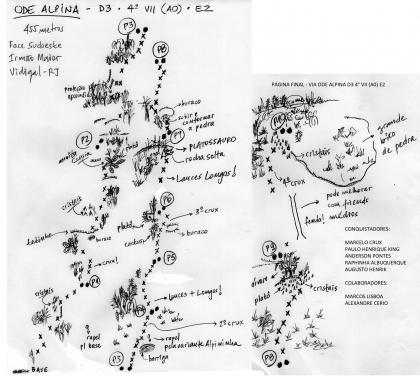 ODE ALPINA - D3 - 4º VII (A0) - E2
455 metros
Face Sudoeste
Irmão Maior
Vidigal - RJ
P3
P8
buraco
subir e
contornar
a pedra
P2
P7
PLATOSSAURO
rocha solta
Lances Longos!
cristais
P6
platô
3º crux
buraco
cactus
buraco
crux!
P5
cristais
P4
Lances + Longos!
2º crux
rapel
p/ base
rapel
pela variante Alpiminha
barriga
BASE
P3
PÁGINA FINAL - VIA ODE ALPINA D3 4º VII (A0) E2
grande
bloco
de pedra
cristais
4º crux
pode melhorar
com friends
fenda! médios
CONQUISTADORES:
MARCELO CRUX
PAULO HENRIQUE KING
ANDERSON PONTES
RAPHINHA ALBUQUERQUE
AUGUSTO HENRIK
P9
cristais
platô
COLABORADORES:
MARCOS LISBOA
ALEXANDRE CERIO
P8